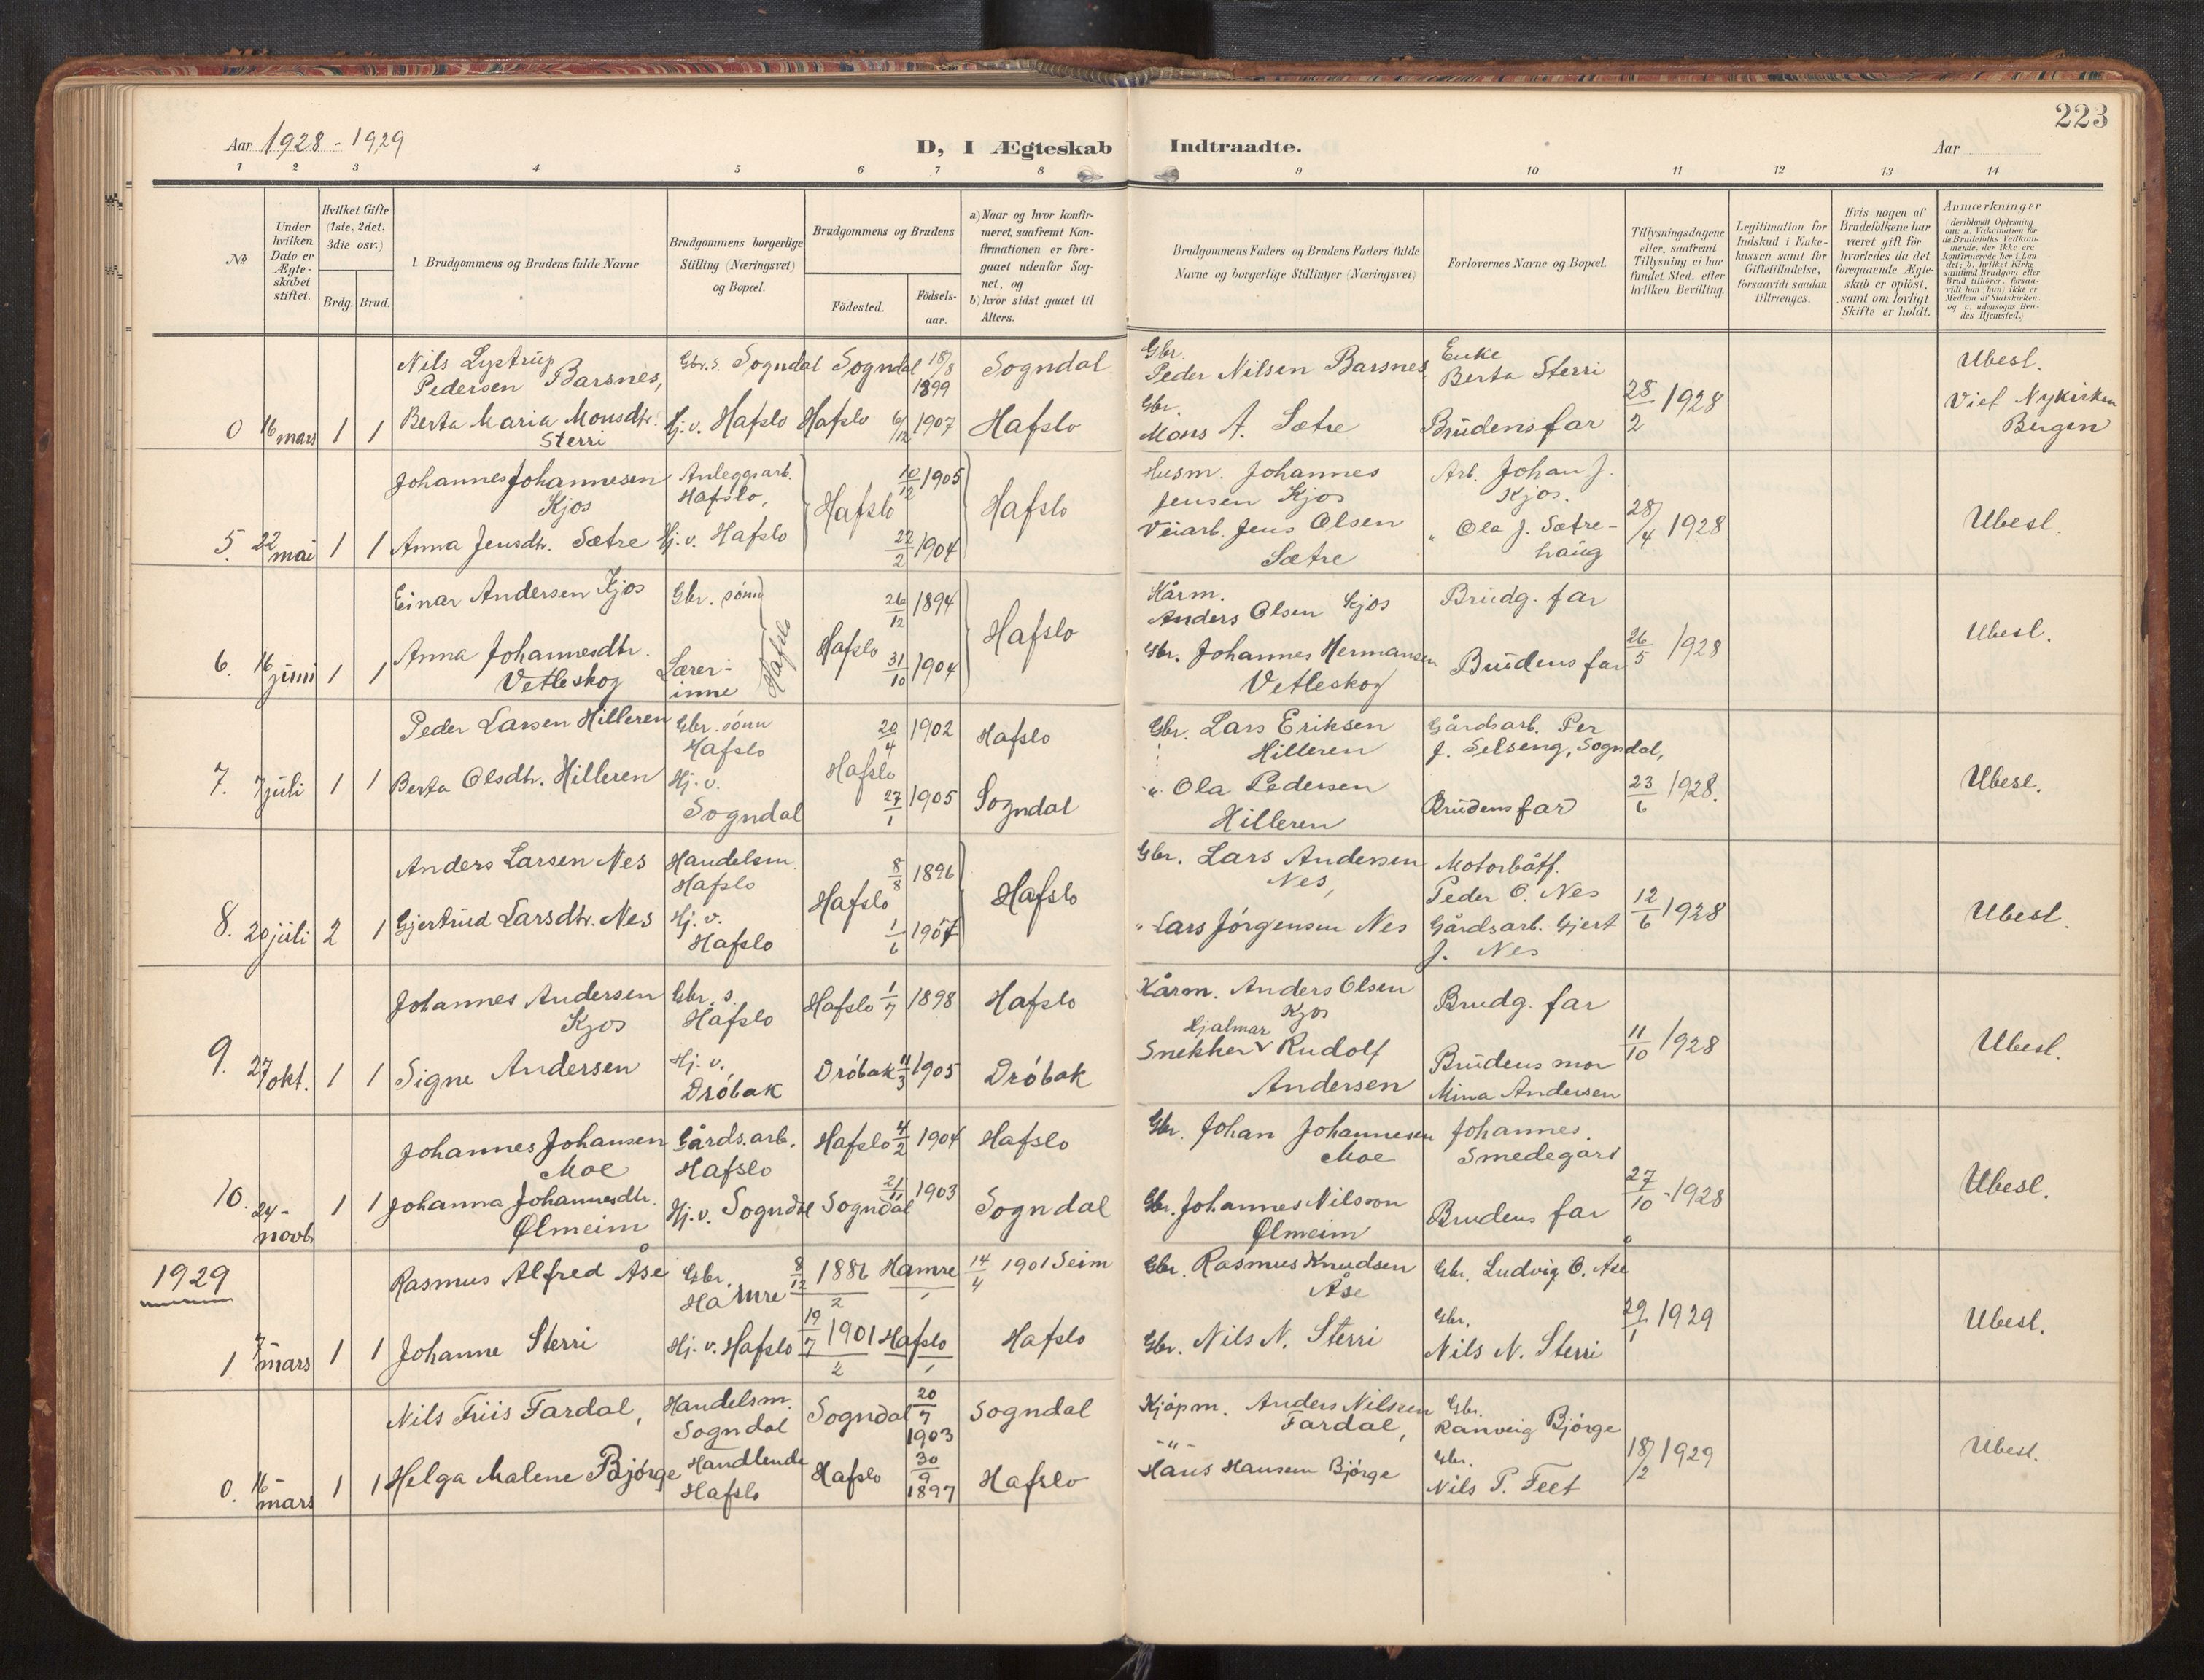 223
Aar 1928 - 1929
D, I Ægteskab Indtraadte.
Aar
1 2 3 4 5 6 7 8 9 10 11 12 13 14
No
Under hvilken Dato er Ægte-skabet stiftet.
Hvilket Gifte (1ste, 2det, 3die osv.)
Brdg. Brud.
1. Brudgommens og Brudens fulde Navne
Brudgommens borgerlige Stilling (Næringsvei) og Bopæl.
Brudgommens og Brudens
Födested.
Födsels-aar.
a) Naar og hvor konfir-meret, saafremt Kon-firmationen er fore-gaaet udenfor Sog-net, og
b) hvor sidst gaaet til Alters.
Brudgommens Faders og Brudens Faders fulde Navne og borgerlige Stillinger (Næringsvei)
Forlovernes Navne og Bopæl.
Tillysningsdagene eller, saafremt Tillysning ei har fundet Sted, efter hvilken Bevilling.
Legitimation for Indskud i Enke-kassen samt for Giftetilladelse, forsaavidt saadan tiltrænges.
Hvis nogen af Brudefolkene har været gift för hvorledes da det foregaaende Ægte-skab er oplöst, samt om lovligt Skifte er holdt.
Anmærkninger (deriblandt Oplysning om: a. Vakcination for de Brudefolks Vedkom-mende, der ikke ere konfirmerede her i Lan-det; b. hvilket Kirke-samfund Brudgom eller Brud tilhörer, forsaa-vidt han (hun) ikke er Medlem af Statskirken, og c. udensogns Bru-des Hjemsted.)
Nils Lystrup Pedersen Barsnes, Gbr. s. Sogndal Sogndal 18/8 1899 Sogndal Gbr. Peder Nilsen Barsnes Enke Berta Sterri Ubesl.
0 16 mars 1 1 Berta Maria Monsdtr. Sterri Hj. v. Hafslo Hafslo 6/12 1907 Hafslo Gbr. Mons A. Sætre Brudens far 28/2 1928 Viet Nykirken Bergen
Johannes Johannesen Kjos Anleggsarb. Hafslo, Hafslo 10/12 1905 Hafslo Husm. Johannes Jensen Kjos Arb. Johan J. Kjos.
5. 22 mai 1 1 Anna Jensdtr. Sætre Hj. v. Hafslo 22/2 1904 Veiarb. Jens Olsen Sætre " Ola J. Sætre-haug 28/4 1928 Ubesl.
Einar Andersen Kjos Gbr. sønn Hafslo Hafslo 26/12 1894 Hafslo Kårm. Anders Olsen Kjos Brudg. far
6. 16 juni 1 1 Anna Johannesdtr. Vetleskog Lærer-inne 31/10 1904 Gbr. Johannes Hermansen Vetleskog Brudens far 26/5 1928 Ubesl.
Peder Larsen Hilleren Gbr. sønn Hafslo Hafslo 20/4 1902 Hafslo Gbr. Lars Eriksen Hilleren Gårdsarb. Per J. Selseng, Sogndal,
7. 7 juli 1 1 Berta Olsdtr. Hilleren Hj. v. Sogndal 27/1 1905 Sogndal " Ola Pedersen Hilleren Brudens far 23/6 1928. Ubesl.
Anders Larsen Nes Handelsm. Hafslo Hafslo 8/8 1896 Hafslo Gbr. Lars Andersen Nes, Motorbåtf. Peder O. Nes
8. 20 juli 2 1 Gjertrud Larsdtr. Nes Hj. v. Hafslo 1/6 1907 " Lars Jörgensen Nes Gårdsarb. Gjert J. Nes 12/6 1928 Ubesl.
Johannes Andersen Kjos Gbr. s. Hafslo Hafslo 1/7 1898 Hafslo Kårm. Anders Olsen Kjos Brudg. far
9. 27 okt. 1 1 Signe Andersen Hj. v. Dröbak Dröbak 11/3 1905 Dröbak Snekker Hjalmar Rudolf Andersen Brudens mor Mina Andersen 11/10 1928 Ubesl.
Johannes Johansen Moe Gårds.arb. Hafslo Hafslo 4/2 1904 Hafslo Gbr. Johan Johannesen Moe Johannes Smedegard
10. 24- novb. 1 1 Johanna Johannesdtr. Ølmeim Hj. v. Sogndal Sogndal 21/11 1903 Sogndal Gbr. Johannes Nilsson Ølmeim Brudens far 27/10 - 1928 Ubesl.
1929
Rasmus Alfred Åse Gbr. Hamre 8/12 1886 2 Hamre 1 14/4 1901 Seim Gbr. Rasmus Knudsen Åse Gbr. Ludvig O. Åse
1 7 mars 1 1 Johanne Sterri Hj. v. Hafslo 19/7 1901 2 Hafslo 1 Hafslo Gbr. Nils N. Sterri Gbr. Nils N. Sterri 29/1 1929 Ubesl.
Nils Friis Fardal, Handelsm. Sogndal Sogndal 20/7 1903 Sogndal Kjöpm. Anders Nilsen Fardal, Gbr. Ranveig Bjørge
0. 16 mars 1 1 Helga Malene Bjørge Handlende Hafslo Hafslo 30/9 1897 Hafslo -"- Hans Hansen Bjørge Gbr. Nils P. Feet 18/2 1929 Ubesl.